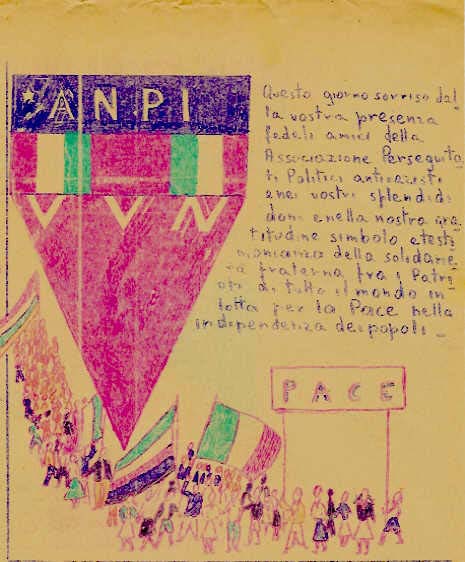 ANPI
VVN
Questo giorno sorriso dal
la vostra presenza
fedeli amici della
Associazione Perseguita
ti Politici antinazisti
e nei vostri splendidi
doni e nella nostra gra
titudine simbolo e testi
monianza della solidarie
tà fraterna fra i Patri
oti di tutto il mondo in
lotta per la Pace nella
indipendenza dei popoli _
PACE